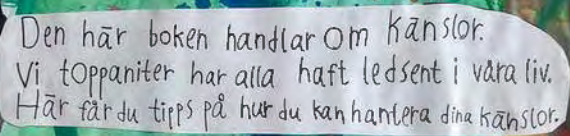 Den här boken handlar om känslor.
Vi toppaniter har alla haft ledsent i våra liv.
Här får du tipps på hur du kan hantera dina känslor.